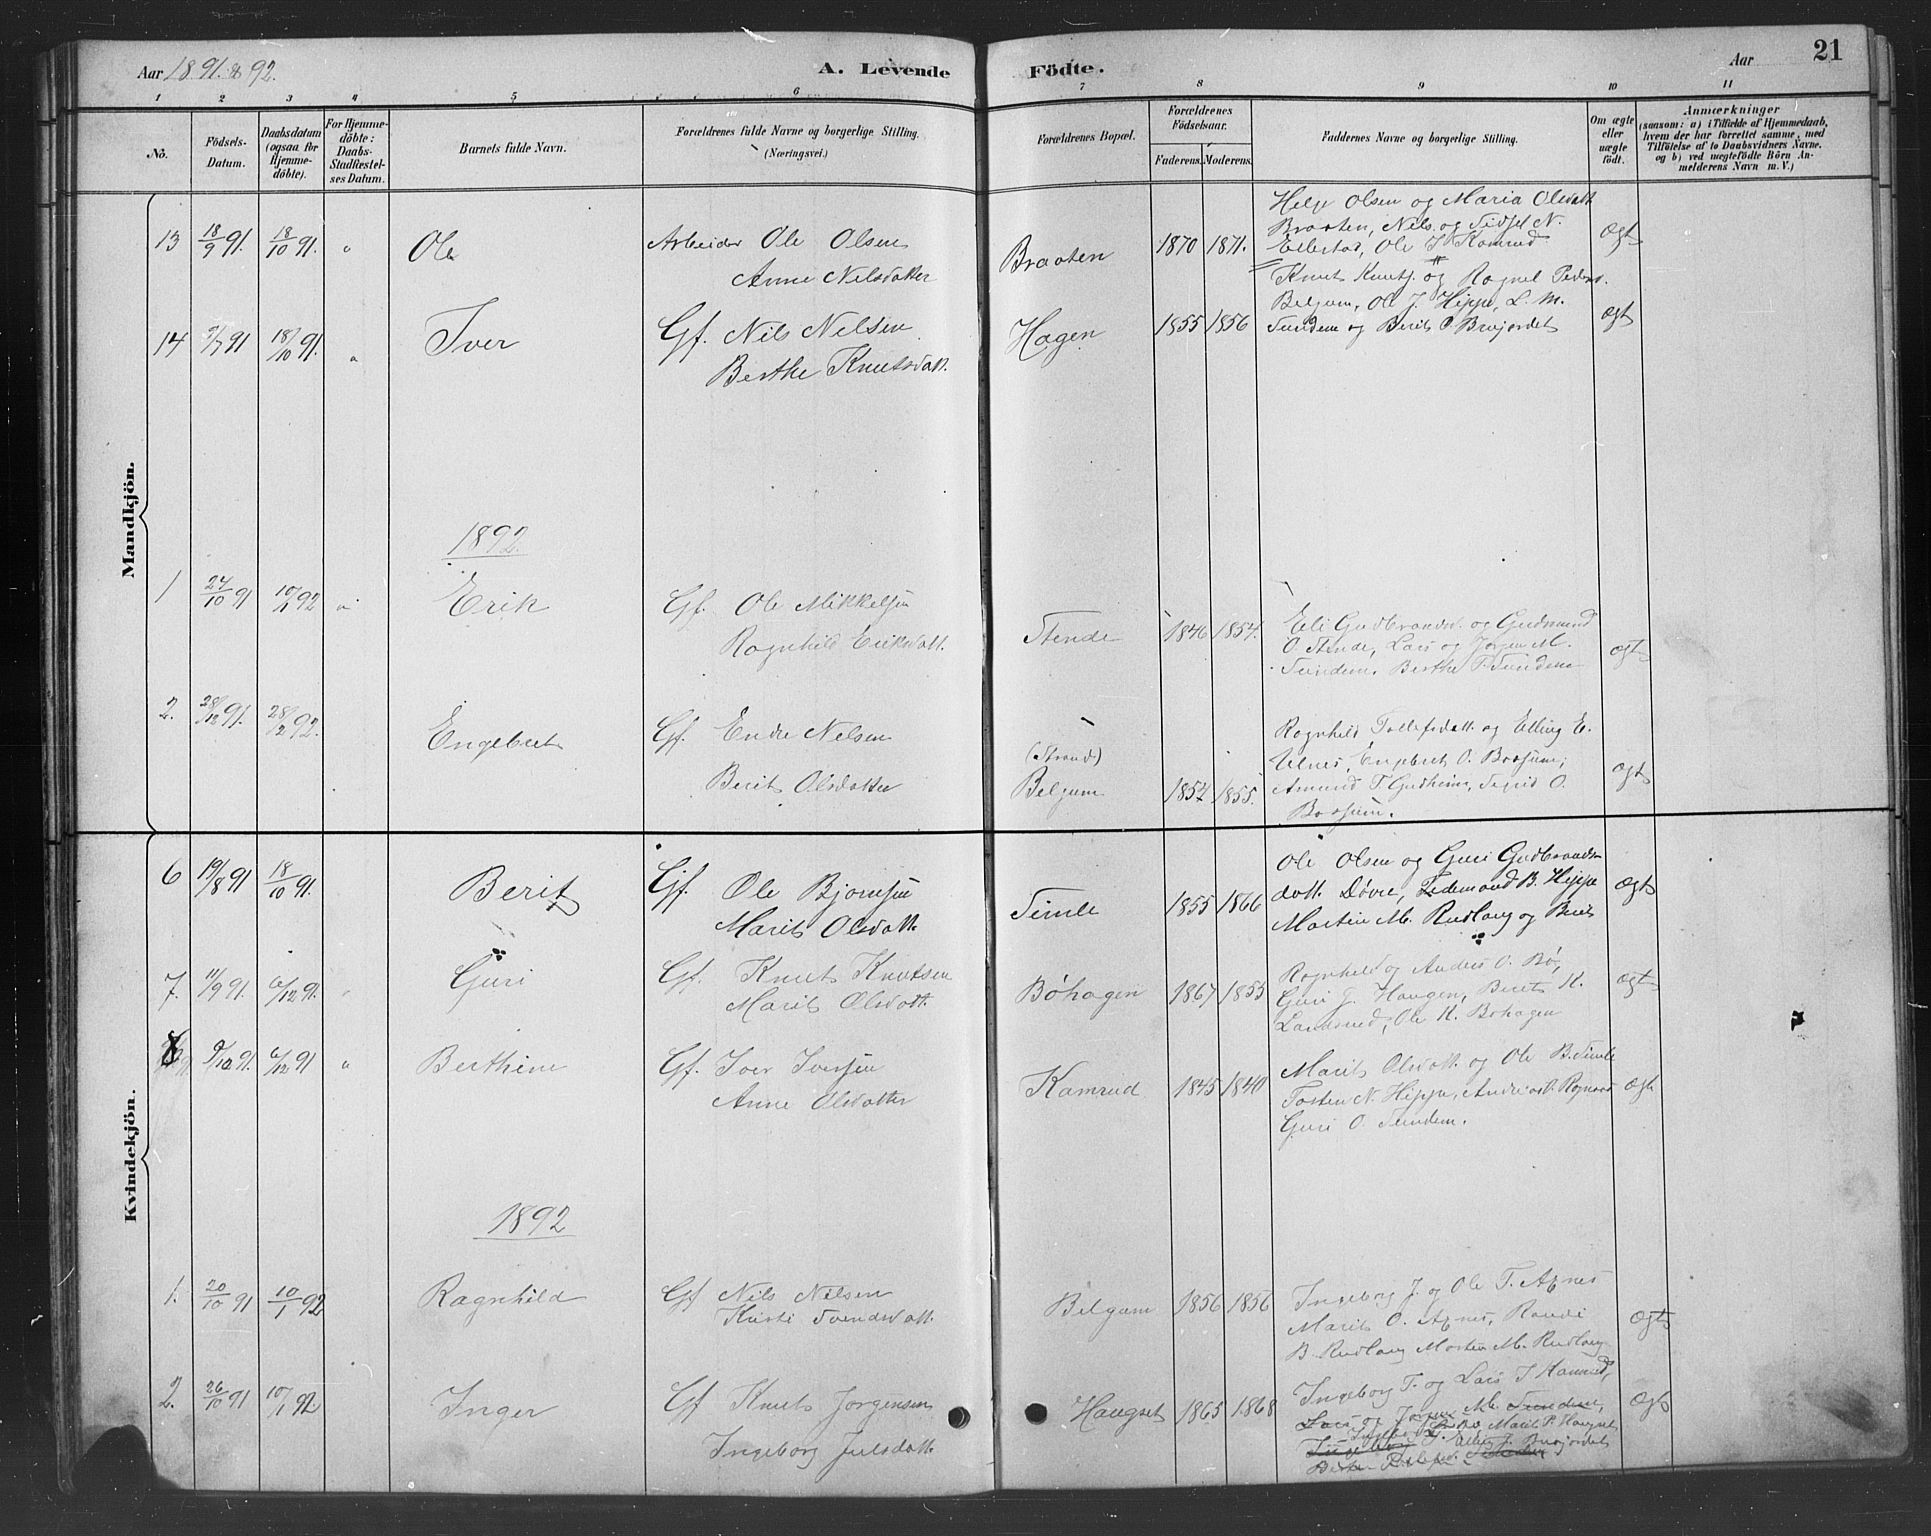 Aar 1891. & 92.
A. Levende Födte.
Aar
21
1 2 3 4 5 6 7 8 9 10 11
No.
Födsels-Datum.
Daabsdatum (ogsaa for Hjemme-döbte).
For Hjemme-döbte: Daabs-Stadfæstel-ses Datum.
Barnets fulde Navn.
Forældrenes fulde Navne og borgerlige Stilling.
(Næringsvei.)
Forældrenes Bopæl.
Forældrenes Födselsaar.
Faderens. Moderens.
Faddernes Navne og borgerlige Stilling.
Om ægte eller uægte födt.
Anmærkninger
(saasom: a) i Tilfælde af Hjemmedaab,
hvem der har forrettet samme, med
Tilföielse af to Daabsvidners Navne.
og b) ved uægtefödte Börn An-
melderens Navn m. V.)
Mandkjön.
13 18/9 91. 18/10 91. " Ole Arbeider Ole Olsen
Anne Nilsdatter
Braaten 1870 1871.
Helge Olsen og Maria Olsdatt
Braaten, Nils og Sidsel N.
Ellestad, Ole I. Kamrud
Ægt
14 91 18/10 91. " Iver Gf. Nils Nelsen
Berthe Knutsdatt.
Hagen 1855 1856
Knut Knuts. og Ragnel Peders.
Belgum, Ole J. Hippe, L. M.
Sundem og Berit O. Brujordet
Ægt
1892
1 24/10 91 10/1 92 " Erik Gf. Ole Mikkelsen
Ragnhild Eriksdatt.
Stende 1846 1854.
Eli Gudbrandsd. og Gudmund
O. Stende, Lars og Jørgen M.
Sundem. Berthe T. Sundem
Ægt
2. 28/12 91. 28/2 92. Engebret Gf. Endre Nelsen
Berit Olsdatter
(Strand)
Belgum 1854 1855.
Ragnhild Tollefsdatt. og Elling E.
Ulnes, Engebret O. Baasum,
Amund T. Gudheim, Sigrid O.
Baasum.
Ægt
Kvindekjön.
6 19/8 91 18/10 91. Berit Gf. Ole Bjørnsen
Marit Olsdatt.
Semle 1855 1866
Ole Olsen og Guri Gudbrands
datt. Døvre, Tidemand B. Hippe
Morten M. Rudlang og Berit
Ægt
7. 11/9 91. 6/12 91. Guri Gf. Knut Knutsen
Marit Olsdatt.
Bøhagen 1867 1855
Ragnhild og Anders O. Bø,
Guri J. Haugen, Berit K.
Ole K. Bøhagen
Ægt
8 9/10 91. 6/12 91 " Berthine Gf. Iver Iversen
Anne Olsdatter
Kamrud 1845 1840
Marit Olsdatt. og Ole B. Semle
Tosten N. Hippe, Andreas
Guri O. Sundem.
Ægt
1892
1. 20/10 91 10/1 92 Ragnhild Gf Nils Nilsen
Kirsti Svendsdatt.
Belgum 1856 1856
Ingeborg J. og Ole T. Agnes
Marit O. Agnes, Randi
B. Rudlang Morten M. Rudlang
Ægt
2. 26/10 91 10/1 92 Inger Gf Knut Jørgensen
Ingeborg Julsdatt.
Haugset 1865 1868
Ingeborg T. og Lars I. Kamrud,
Lars og Jørgen M. Sundem,
Marit P. Haugset
Brujordet
Ægt